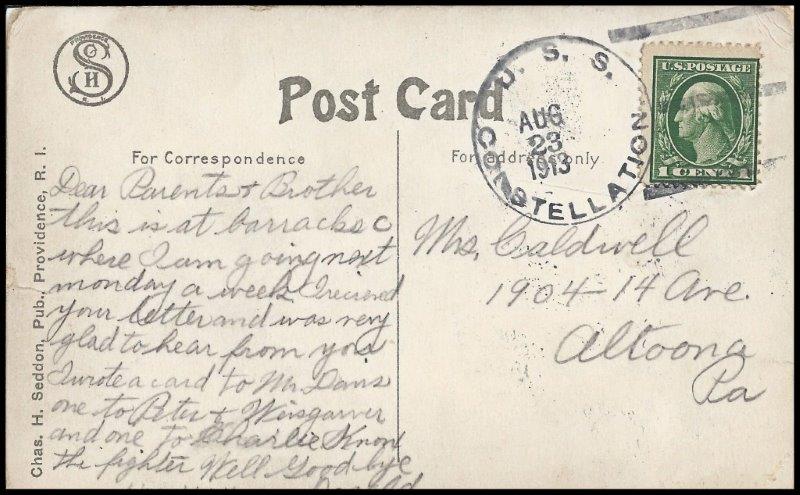 PROVIDENCE
S H
R. I.
Post Card
For Correspondence
For address only
Chas. H. Seddon, Pub., Providence, R. I.
U. S. S.
CONSTELLATION
AUG
23
1913
U.S. POSTAGE
1 CENT 1
Dear Parents & Brother
this is at barracks C
where I am going next
monday a week I reciend
your letter and was very
glad to hear from you
I wrote a card to Mr. Davis
one to Peter & Weisgarver
and one to Charlie Knox
the fighter Well Good bye
Mrs. Caldwell
1904-14 Ave.
Altoona
Pa